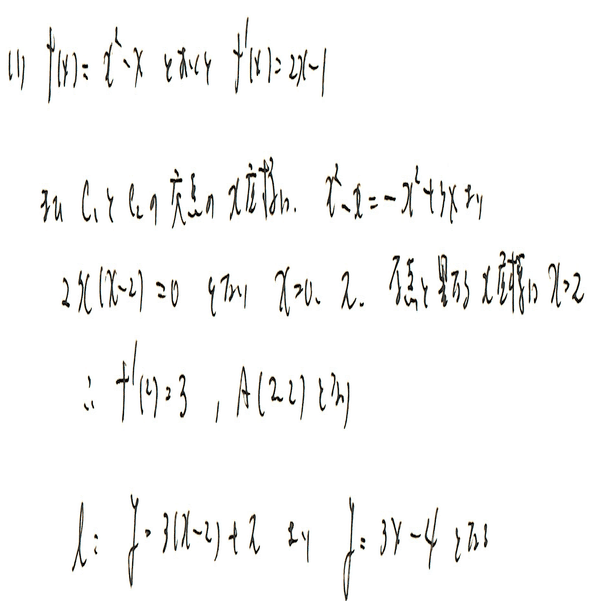 (1) f(x)=x²-x とおくと f'(x)=2x-1
また C₁とC₂の交点のx座標は、x²-x=-x²+3xより
2x(x-2)=0 となり x=0、2、原点と異なるx座標はx=2
∴ f'(2)=3 , A(2,2)となり
l: y=3(x-2)+2 より y=3x-4となる